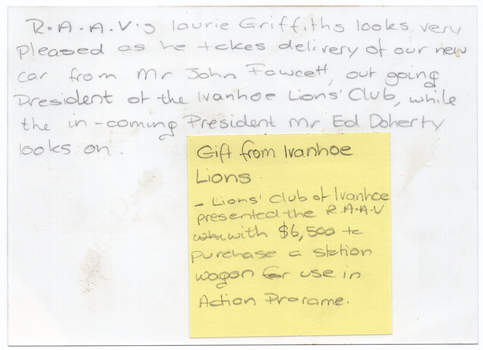 R.A.A.V's laurie Griffiths looks very
pleased as he takes delivery of our new
car from Mr John Fawcett, out going
President of the Ivanhoe Lions' Club, while
the in-coming President Mr Ed Doherty
looks on.
Gift from Ivanhoe
Lions
- Lions' Club of Ivanhoe
presented the R.A.A.V
with $6,500 to
purchase a station
wagon for use in
Action Programe.